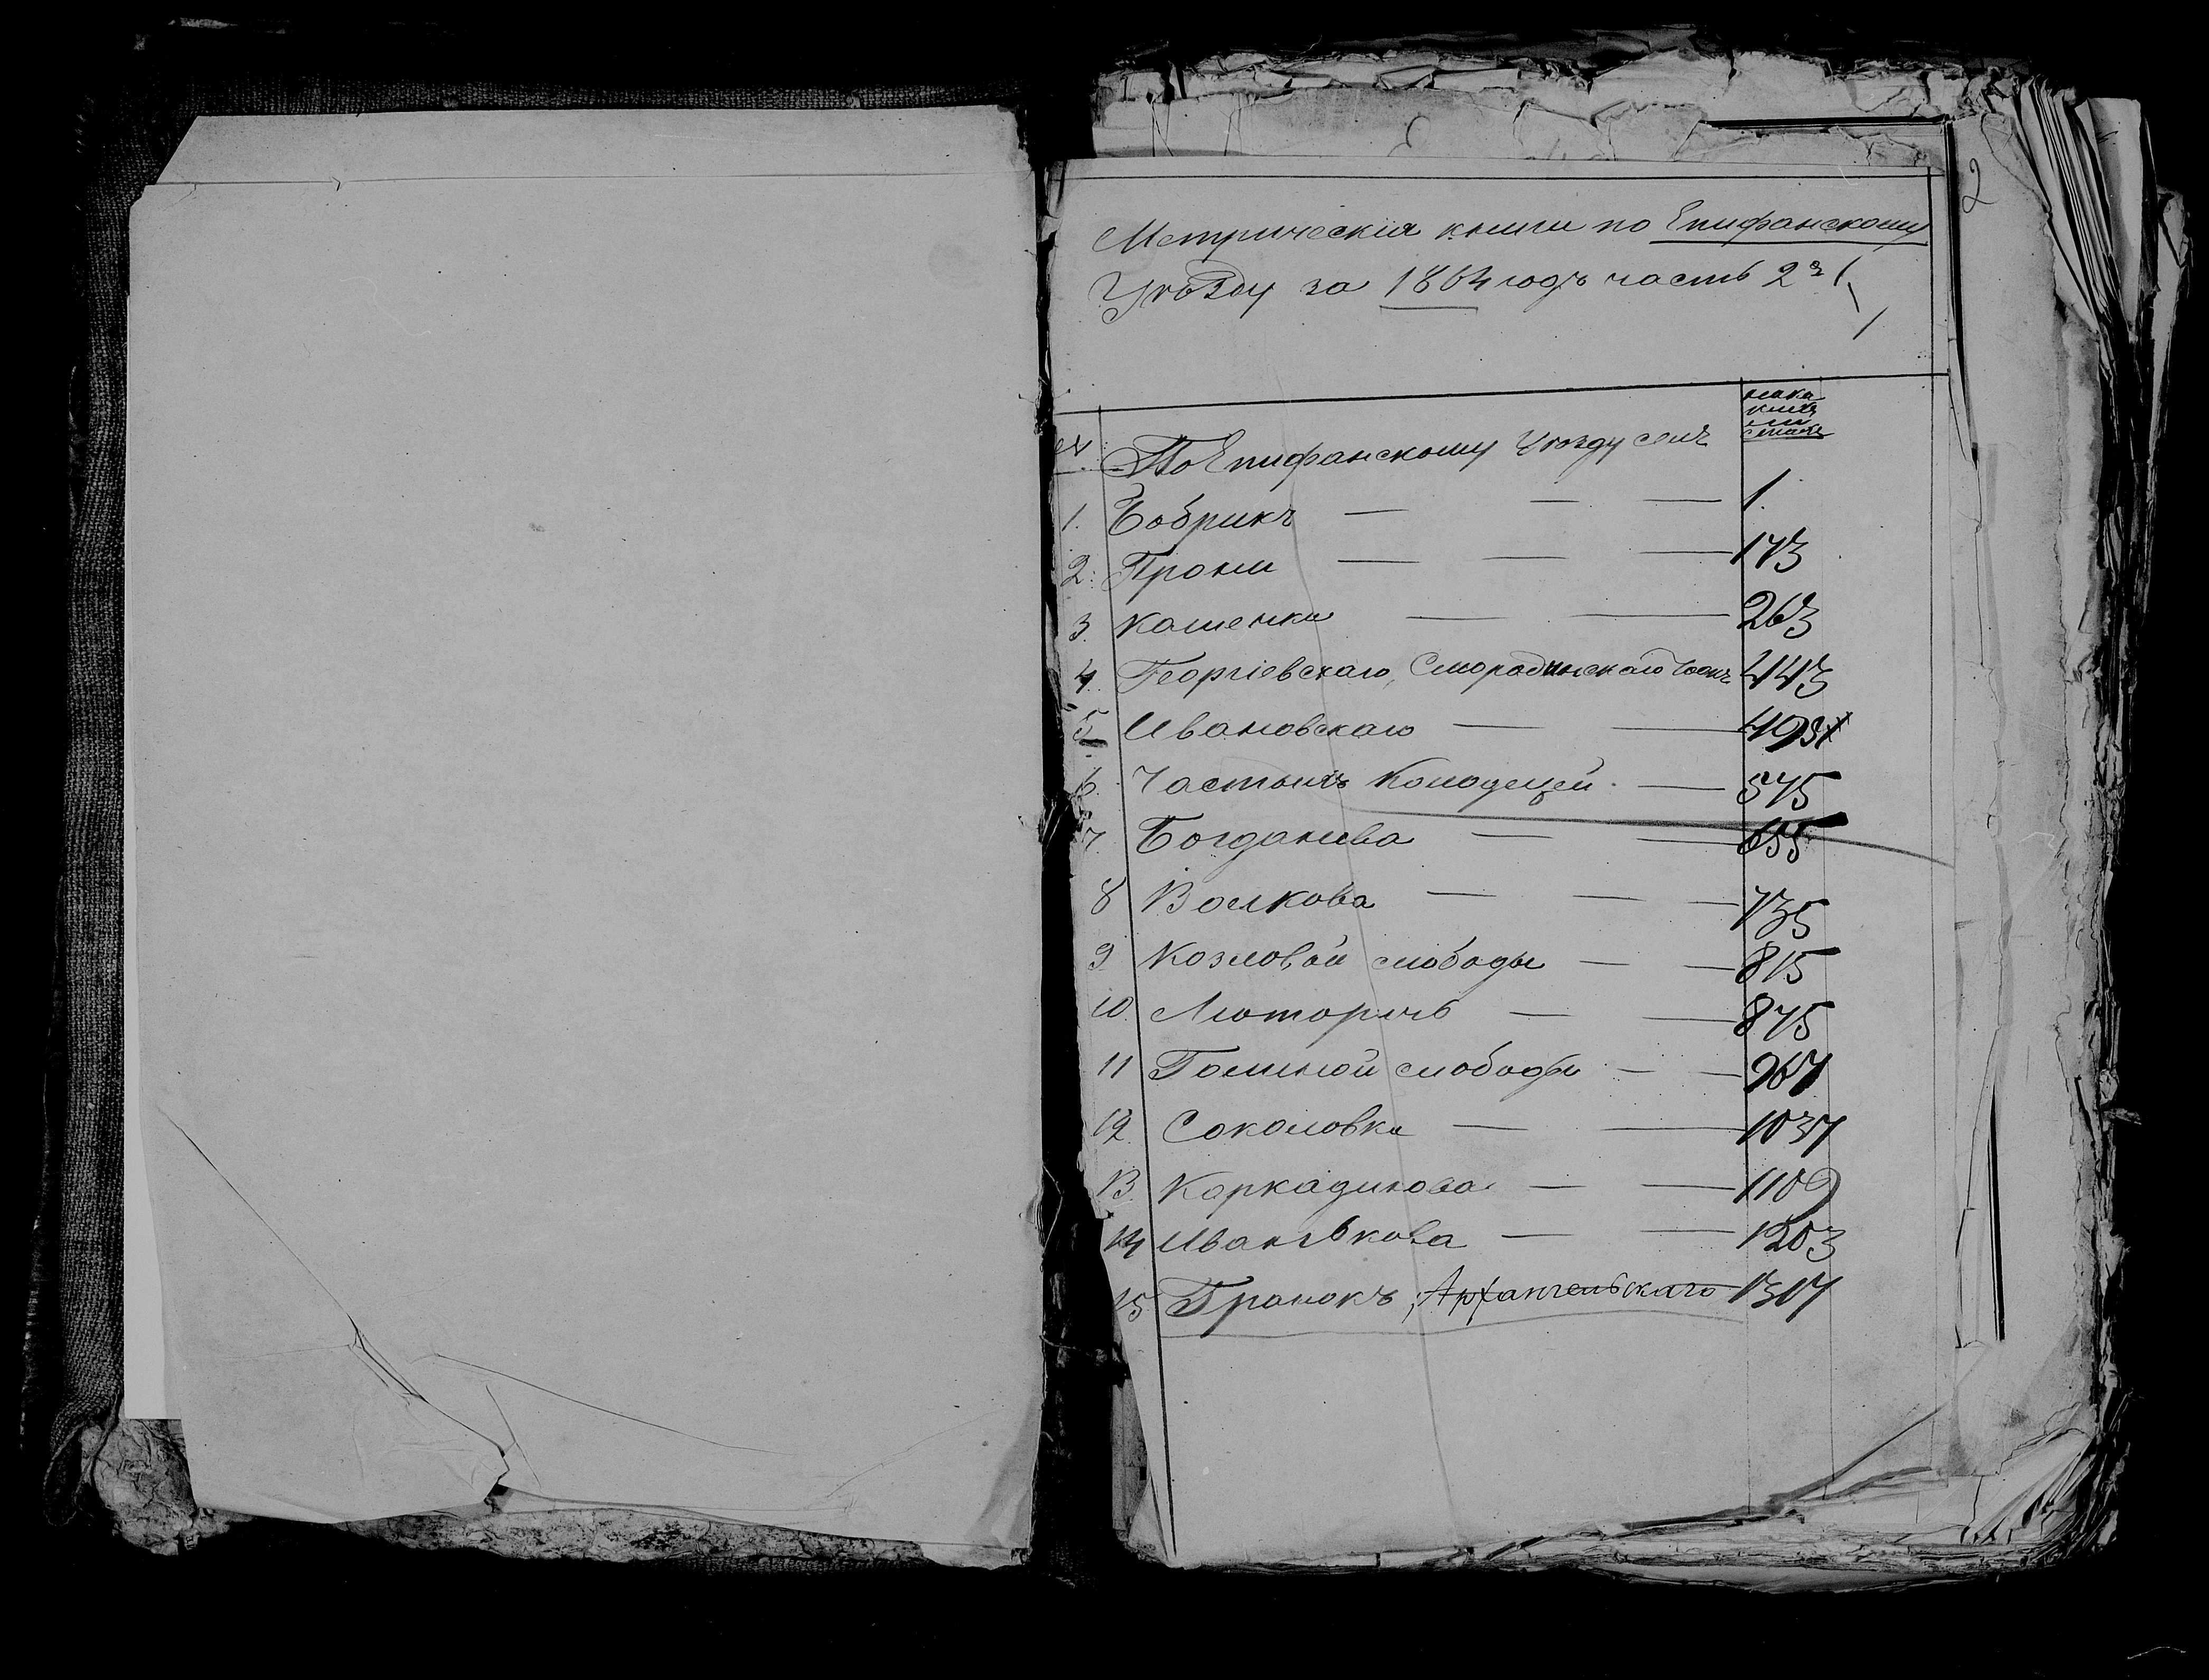 2
Метрическія книги по Епифанскому
Уѣзду за 1864 годъ часть 2я
№ По Епифанскому Уѣзду селъ
1. Бобрикъ — — — 1.
2. Прони — — — 173
3. Каменки — — 263
4. Георгіевскаго, Смородинскаго тожъ 443
5 Ивановскаго — — 493
6. Частыхъ Колодезей — 575
7 Богданова — — 655
8 Волкова — — — 735
9 Козловой слободы — — 815
10. Люторичь — — 875
11 Гоминой слободы — — 967
12. Соколовка — — 1037
13. Каркадинова — — 1109
14 Иванькова — — 1203
15 Гранокъ, Архангельскаго 1307